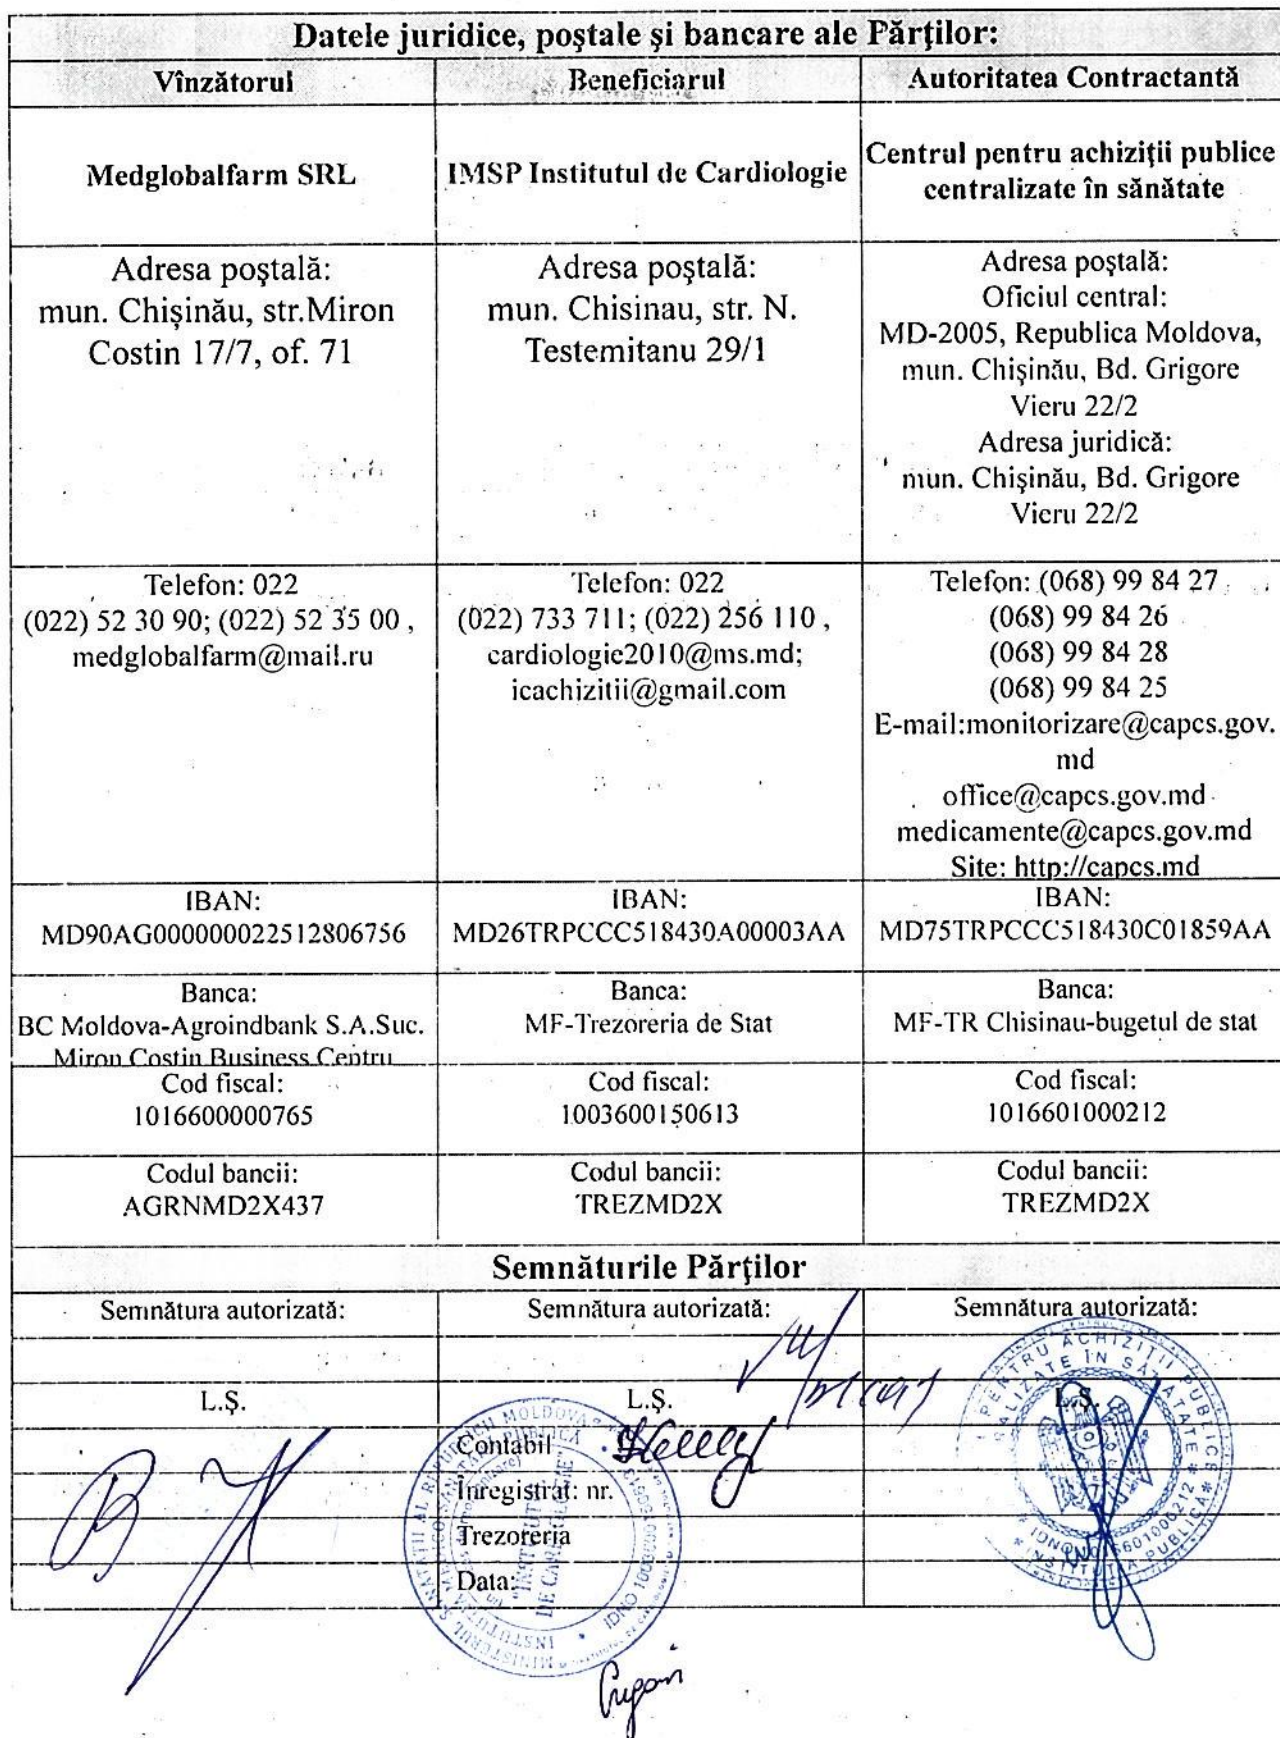 Datele juridice, poştale şi bancare ale Părţilor:
Vînzătorul
Beneficiarul
Autoritatea Contractantă
Medglobalfarm SRL
IMSP Institutul de Cardiologie
Centrul pentru achiziţii publice
centralizate în sănătate
Adresa poştală:
mun. Chișinău, str.Miron
Costin 17/7, of. 71
Adresa poştală:
mun. Chisinau, str. N.
Testemitanu 29/1
Adresa poştală:
Oficiul central:
MD-2005, Republica Moldova,
mun. Chişinău, Bd. Grigore
Vieru 22/2
Adresa juridică:
mun. Chişinău, Bd. Grigore
Vieru 22/2
Telefon: 022
(022) 52 30 90; (022) 52 35 00 ,
medglobalfarm@mail.ru
Telefon: 022
(022) 733 711; (022) 256 110 ,
cardiologie2010@ms.md;
icachizitii@gmail.com
Telefon: (068) 99 84 27
(068) 99 84 26
(068) 99 84 28
(068) 99 84 25
E-mail:monitorizare@capcs.gov.
md
office@capcs.gov.md
medicamente@capcs.gov.md
Site: http://capcs.md
IBAN:
MD90AG000000022512806756
IBAN:
MD26TRPCCC518430A00003AA
IBAN:
MD75TRPCCC518430C01859AA
Banca:
BC Moldova-Agroindbank S.A.Suc.
Miron Costin Business Centru
Banca:
MF-Trezoreria de Stat
Banca:
MF-TR Chisinau-bugetul de stat
Cod fiscal:
1016600000765
Cod fiscal:
1003600150613
Cod fiscal:
1016601000212
Codul bancii:
AGRNMD2X437
Codul bancii:
TREZMD2X
Codul bancii:
TREZMD2X
Semnăturile Părţilor
Semnătura autorizată:
Semnătura autorizată:
Semnătura autorizată:
L.Ş.
L.Ş.
L.Ş.
Contabil
Înregistrat: nr.
Trezoreria
Data:
PENTRU ACHIZIŢII PUBLICE
CENTRALIZATE ÎN SĂNĂTATE
INSTITUŢIA PUBLICĂ
MINISTERUL SĂNĂTĂŢII AL REPUBLICII MOLDOVA
"INSTITUTUL
DE CARDIOLOGIE"